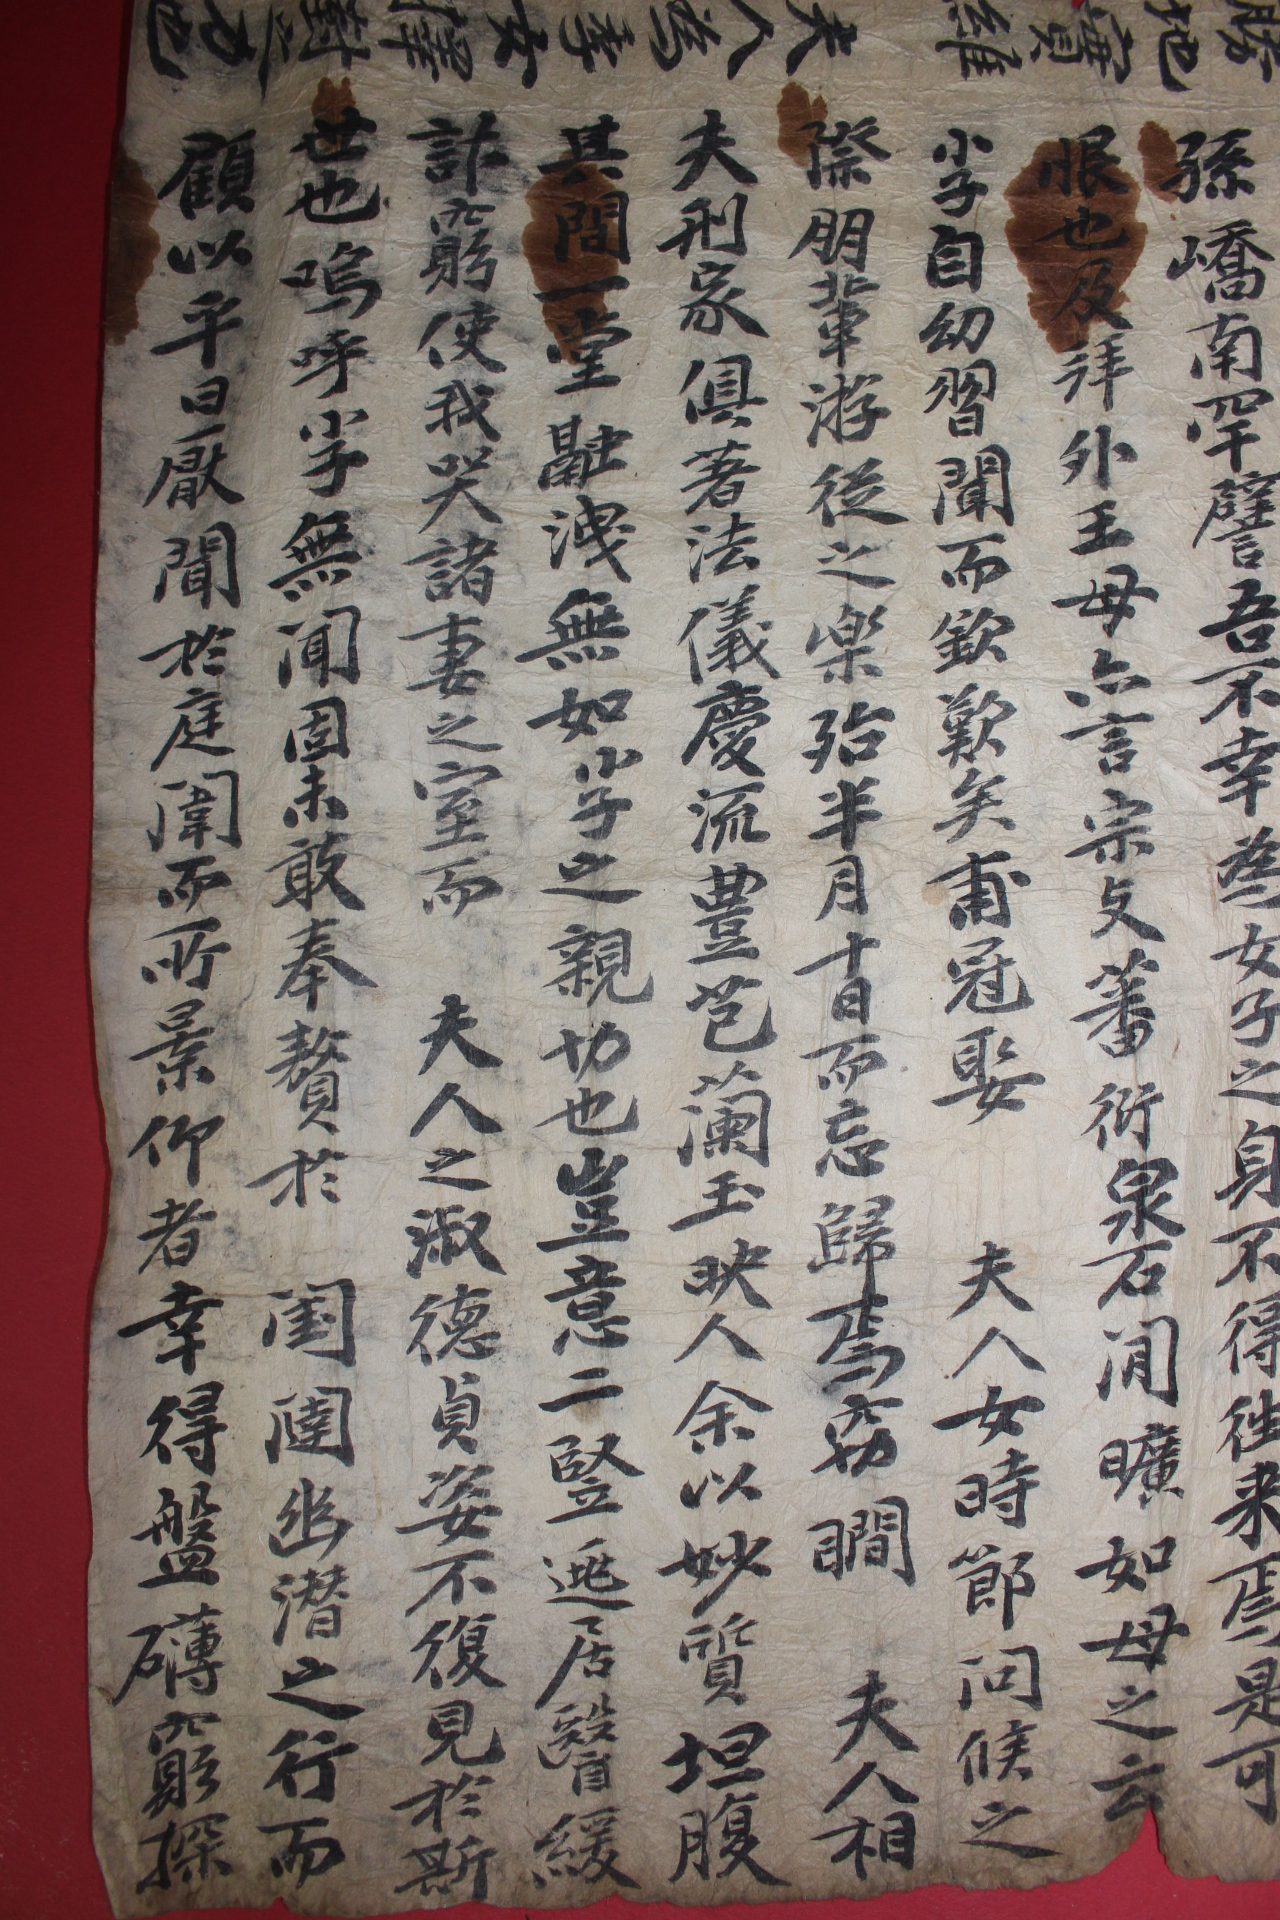 孫嶠南罕譬吾不幸爲女子之身不得往来焉是可
恨也及拜外王母亦言宗支蕃衍泉石閒曠如母之云
小子自幼習聞而欽歎矣甫冠娶 夫人女時節问候之
際朋輩游從之樂殆半月十日而忘歸焉窃瞯 夫人相
夫刑家俱著法儀慶流豊芑蘭玉映人余以妙質坦腹
其間一堂融洩無如小子之親切也豈意二竪遞居醫緩
計窮使我哭諸妻之室而 夫人之淑德貞姿不復見於斯
世也嗚呼小子無聞固未敢奉贊於 閨闈幽潜之行而
顧以平日厭聞於庭闈而所景仰者幸得盤礴窮探